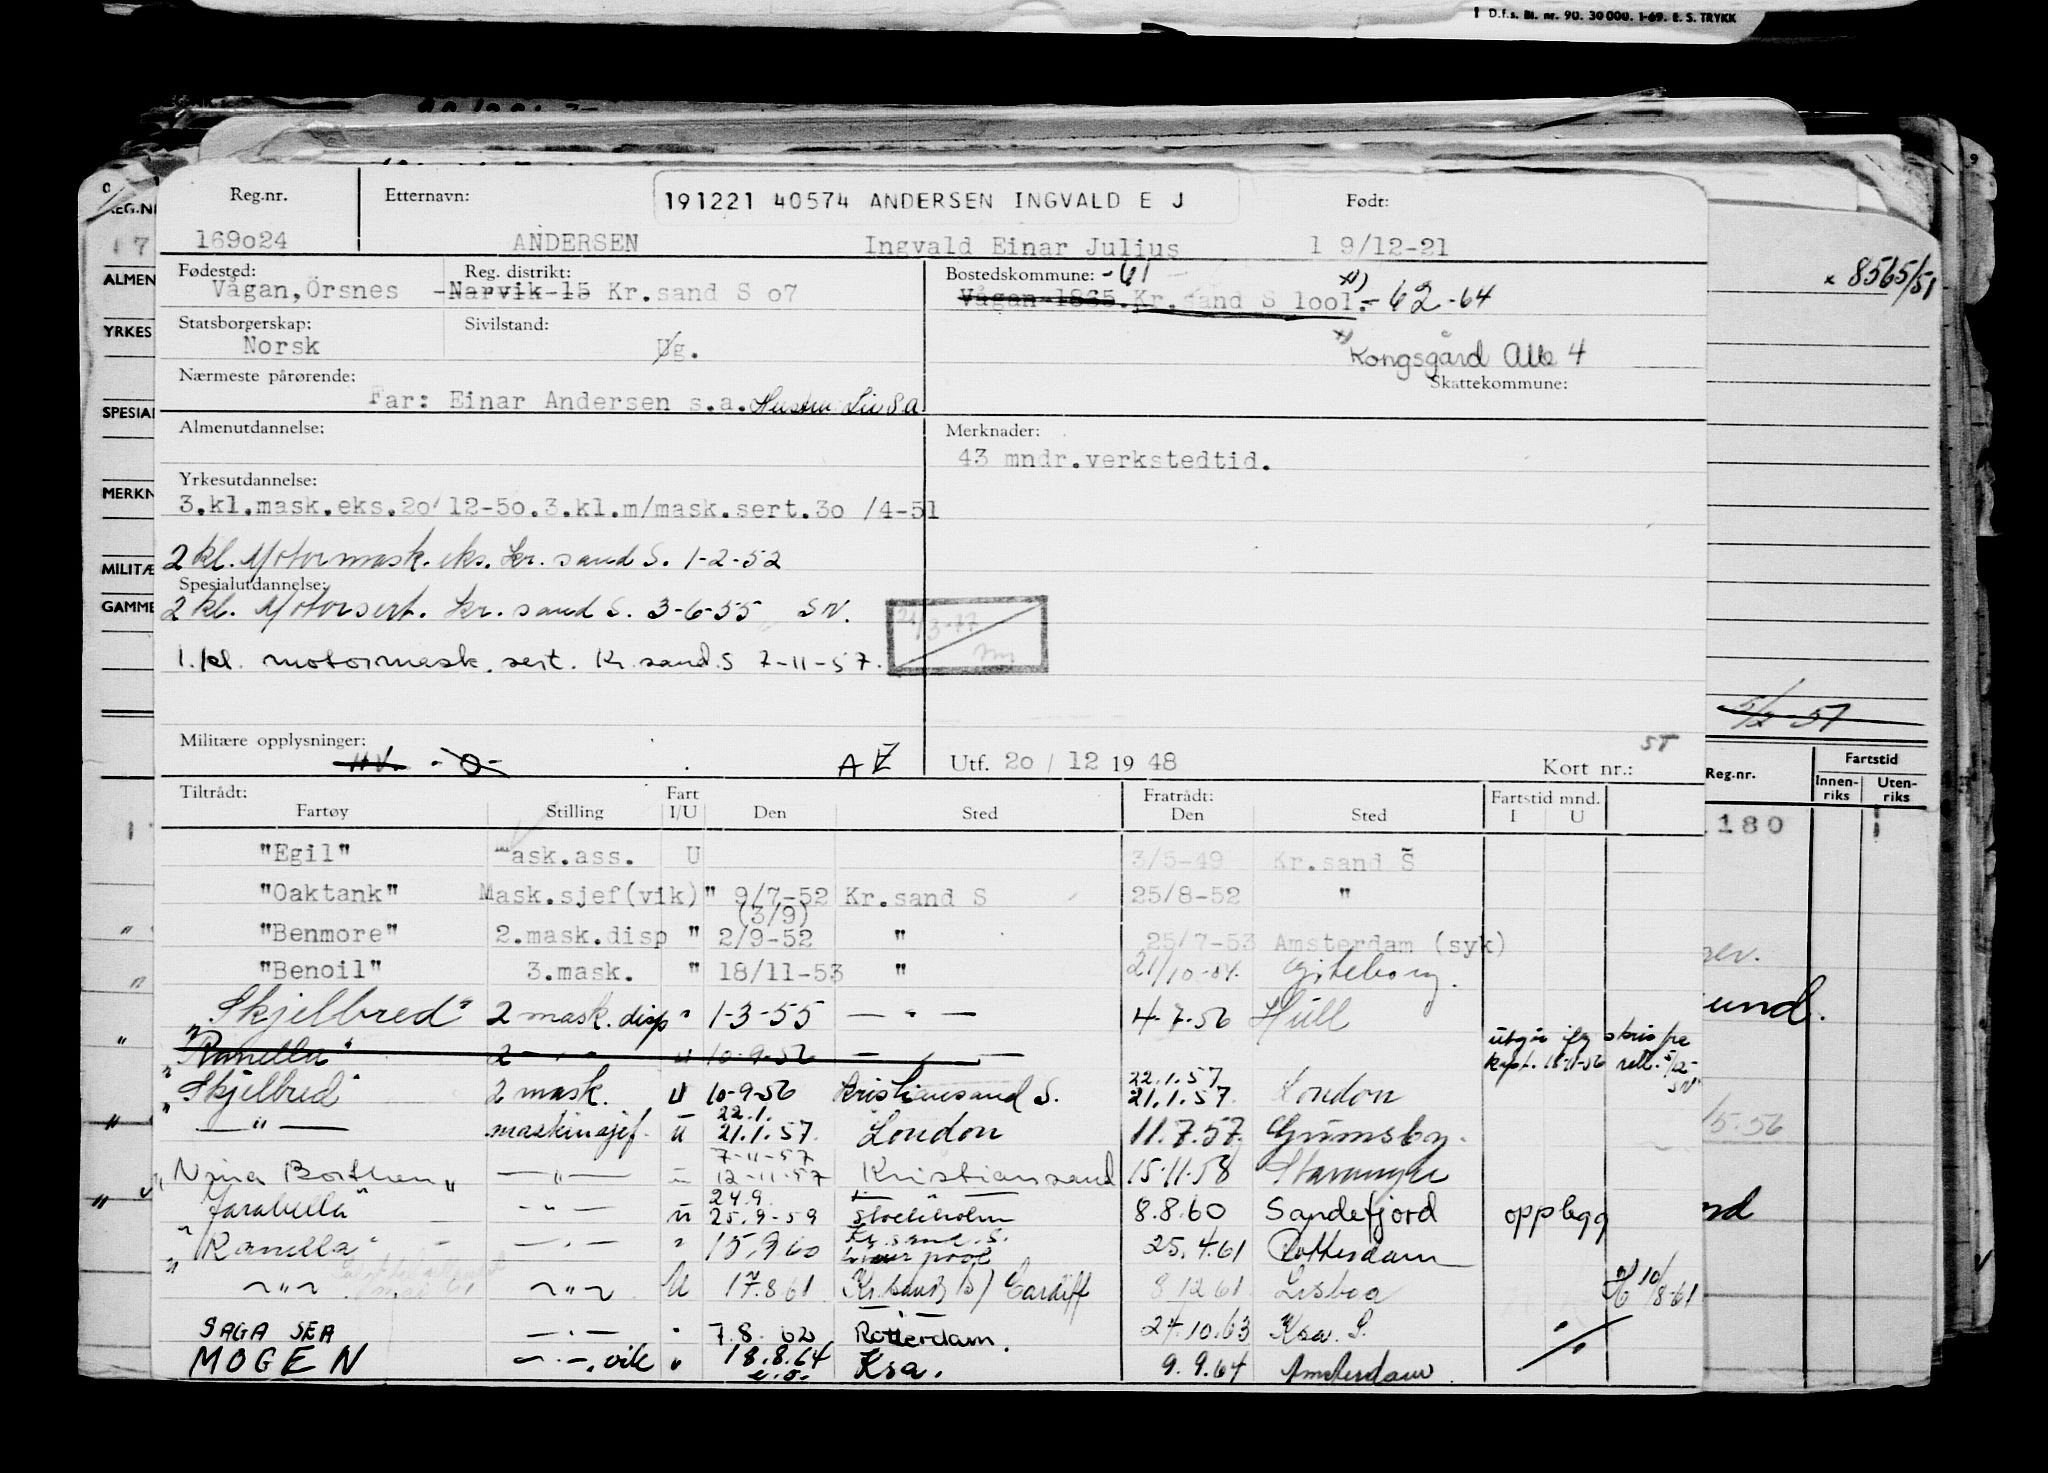 D.f.s. Bl. nr. 90. 30 000. 1-69. E. S. TRYKK
Reg.nr. Etternavn: 191221 40574 ANDERSEN INGVALD E J Født:
169o24 ANDERSEN Ingvald Einar Julius 1 9/12-21
Fødested: Reg. distrikt: Bostedskommune: -61 x)
Vågan, Örsnes Narvik-15 Kr.sand S o7 Vågan-1865. Kr.sand S 1ool.- 62-64
Statsborgerskap: Sivilstand:
Norsk Ug. x) Kongsgård Alle 4
Nærmeste pårørende: Skattekommune:
Far: Einar Andersen s.a. Hustru: Liv S a
Almenutdannelse: Merknader:
43 mndr.verkstedtid.
Yrkesutdannelse:
3.kl.mask.eks.2o/ 12-5o.3.kl.m/mask.sert.3o /4-51
2 kl. Motormask. eks. Kr. sand S. 1-2-52
Spesialutdannelse:
2 kl. Motorsert. Kr. sand S. 3-6-55 SN.
1. kl. motormask. sert. Kr. sand. S 7-11-57.
Militære opplysninger: ST
- O - A Utf. 2o / 12 19 48 Kort nr.:
Tiltrådt: Fart Fratrådt: Fartstid mnd.
Fartøy Stilling I/U Den Sted Den Sted I U
"Egil" Mask.ass. U 3/5-49 Kr.sand S
"Oaktank" Mask.sjef(vik) " 9/7-52 Kr.sand S 25/8-52 "
(3/9)
"Benmore" 2.mask.disp " 2/9-52 " 25/7-53 Amsterdam (syk)
"Benoil" 3.mask. " 18/11-53 " 21/10-54. Göteborg.
"Skjelbred" 2 mask. disp " 1-3-55 — " — 4-7-56 Hull
"Ranella" 2 - " - U 10-9-56 — " — utgår ifg skriv fra
kapt. 18-11-56
22.1.57
"Skjelbred" 2 mask. U 10-9-56 Kristiansand S. 21.1.57. London
22.1.
" — " — maskinsjef. U 21.1.57. London 11.7.57. Grimsby.
7-11-57
"Nina Borthen" — " — 12-11-57 Kristiansand 15.11.58 Stavanger
24.9.
"Farabella" - " - U 25.9-59 Stockholm 8.8.60 Sandefjord opplegg
Kr. sand. S.
"Ranella" — " — " 15.9 60 Liverpool 25.4.61 Rotterdam
~ " ~ ~ " ~ U 17.8.61 Kr. sand S / Cardiff 8 12 61 Lisboa 10/8-61
SAGA SEA — " — " 7.8.62 Rotterdam. 27.10.63 Ksa. S.
MOGEN — " —, vik " 18.8.64 Ksa. 9.9.64 Amsterdam
ALMEN
YRKES
SPESIAL
MERKN
MILITÆ
GAMME
x 8565/51
Reg.nr. Fartstid
Innen-riks Uten-riks
180